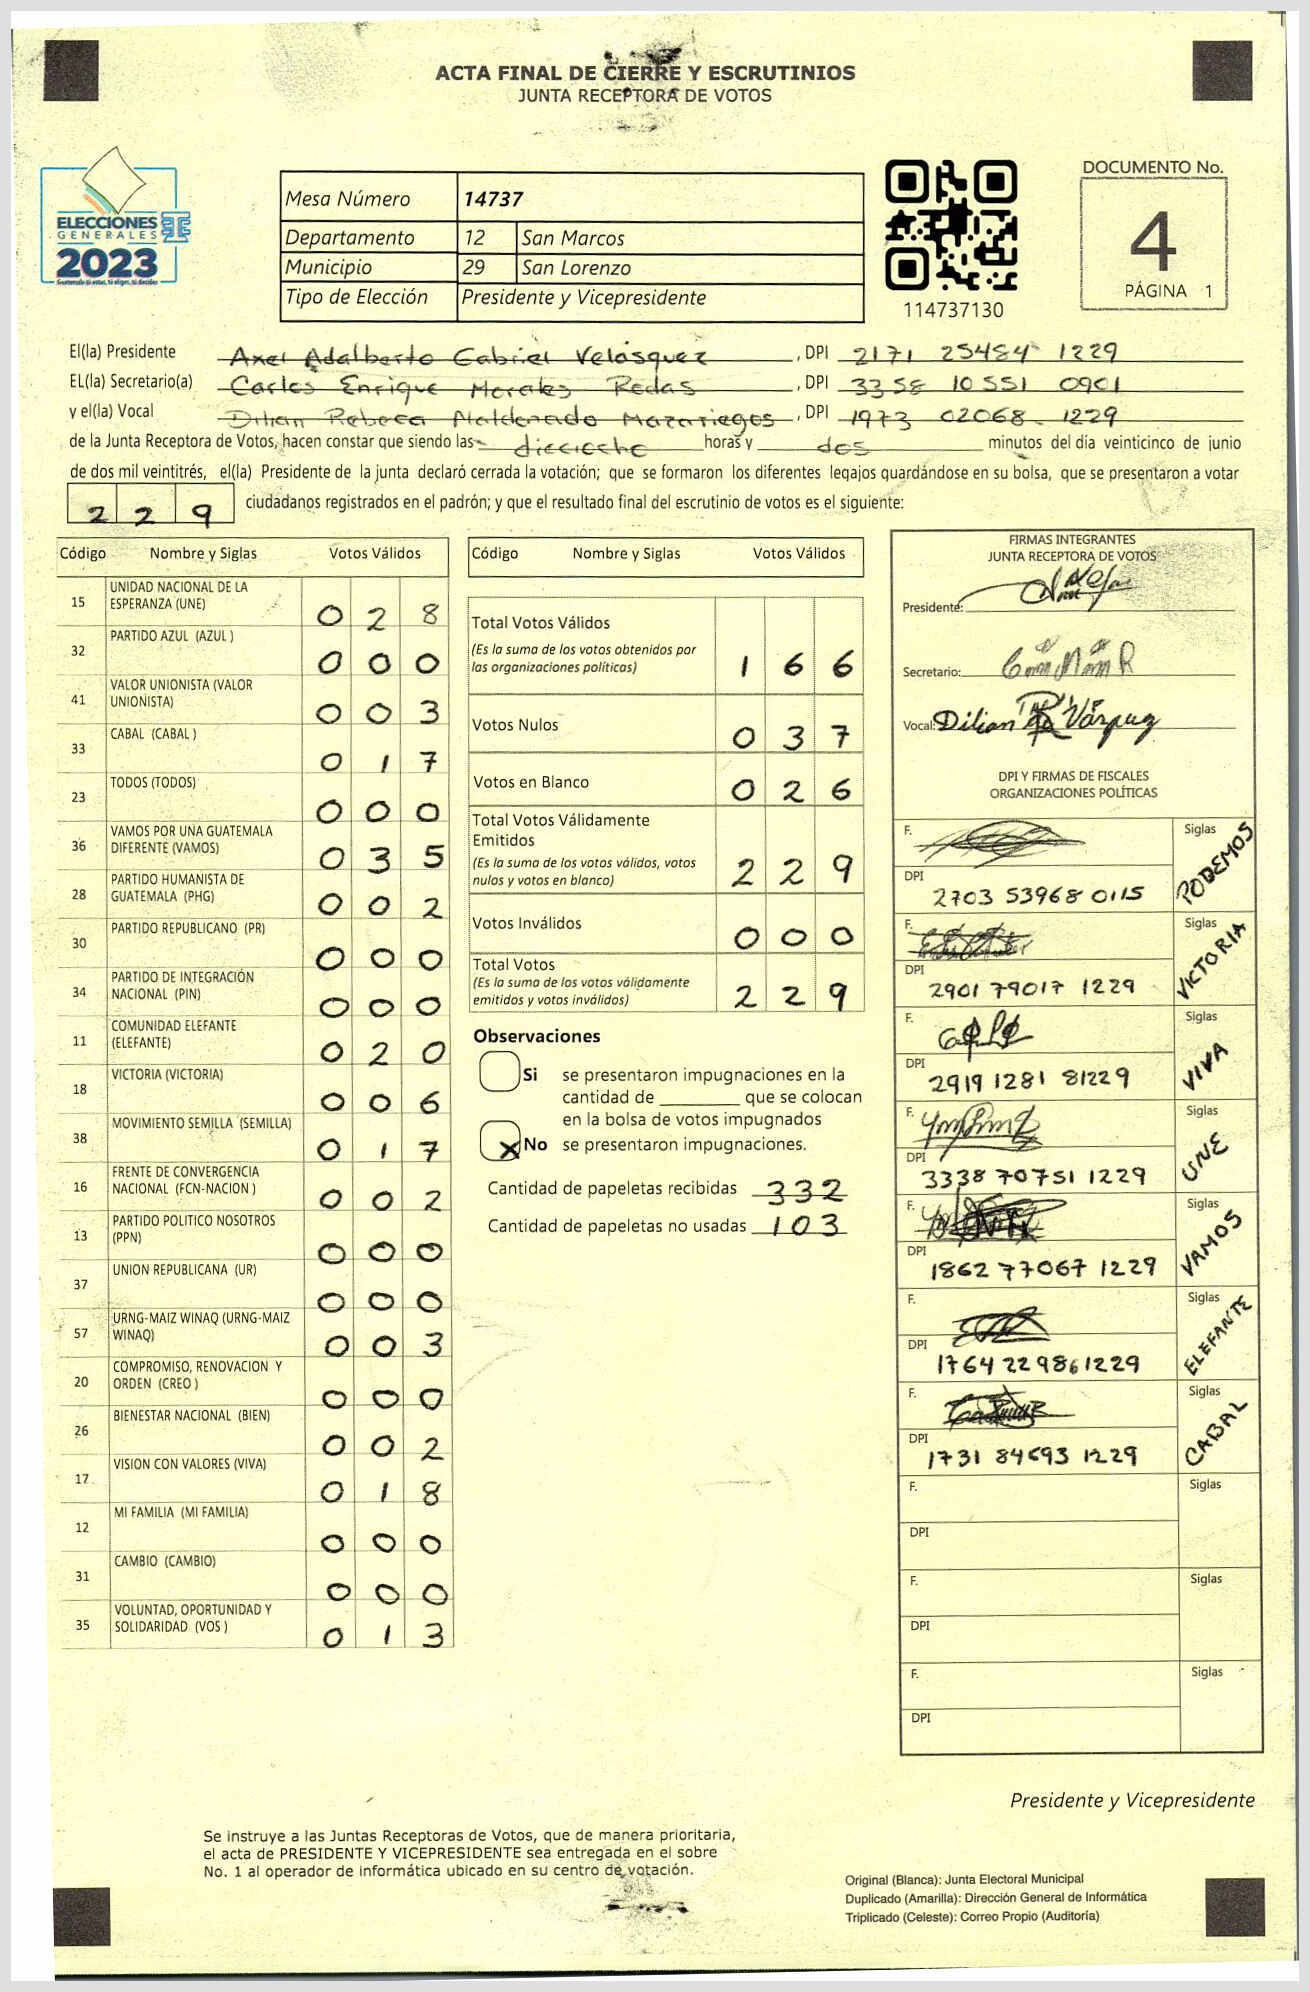 ACTA FINAL DE CIERRE Y ESCRUTINIOS
JUNTA RECEPTORA DE VOTOS
ELECCIONES
GENERALES
2023
Mesa Número 14737
Departamento 12 San Marcos
Municipio 29 San Lorenzo
Tipo de Elección Presidente y Vicepresidente
114737130
DOCUMENTO No.
4
PÁGINA 1
El(la) Presidente Axel Adalberto Gabriel Velásquez, DPI 2171 25484 1229
EL(la) Secretario(a) Carlos Enrique Morales Rodas, DPI 3358 10551 0901
y el(la) Vocal Dilian Rebeca Maldonado Mazariegos, DPI 1973 02068 1229
de la Junta Receptora de Votos, hacen constar que siendo las dieciocho horas y dos minutos del día veinticinco de junio
de dos mil veintitrés, el(la) Presidente de la junta declaró cerrada la votación; que se formaron los diferentes legajos guardándose en su bolsa, que se presentaron a votar
2 2 9 ciudadanos registrados en el padrón; y que el resultado final del escrutinio de votos es el siguiente:
Código Nombre y Siglas Votos Válidos
15 UNIDAD NACIONAL DE LA
ESPERANZA (UNE) 0 2 8
32 PARTIDO AZUL (AZUL ) 0 0 0
41 VALOR UNIONISTA (VALOR
UNIONISTA) 0 0 3
33 CABAL (CABAL ) 0 1 7
23 TODOS (TODOS) 0 0 0
36 VAMOS POR UNA GUATEMALA
DIFERENTE (VAMOS) 0 3 5
28 PARTIDO HUMANISTA DE
GUATEMALA (PHG) 0 0 2
30 PARTIDO REPUBLICANO (PR) 0 0 0
34 PARTIDO DE INTEGRACIÓN
NACIONAL (PIN) 0 0 0
11 COMUNIDAD ELEFANTE
(ELEFANTE) 0 2 0
18 VICTORIA (VICTORIA) 0 0 6
38 MOVIMIENTO SEMILLA (SEMILLA) 0 1 7
16 FRENTE DE CONVERGENCIA
NACIONAL (FCN-NACION ) 0 0 2
13 PARTIDO POLITICO NOSOTROS
(PPN) 0 0 0
37 UNION REPUBLICANA (UR) 0 0 0
57 URNG-MAIZ WINAQ (URNG-MAIZ
WINAQ) 0 0 3
20 COMPROMISO, RENOVACION Y
ORDEN (CREO ) 0 0 0
26 BIENESTAR NACIONAL (BIEN) 0 0 2
17 VISION CON VALORES (VIVA) 0 1 8
12 MI FAMILIA (MI FAMILIA) 0 0 0
31 CAMBIO (CAMBIO) 0 0 0
35 VOLUNTAD, OPORTUNIDAD Y
SOLIDARIDAD (VOS ) 0 1 3
Código Nombre y Siglas Votos Válidos
Total Votos Válidos
(Es la suma de los votos obtenidos por
las organizaciones políticas) 1 6 6
Votos Nulos 0 3 7
Votos en Blanco 0 2 6
Total Votos Válidamente
Emitidos
(Es la suma de los votos válidos, votos
nulos y votos en blanco) 2 2 9
Votos Inválidos 0 0 0
Total Votos
(Es la suma de los votos válidamente
emitidos y votos inválidos) 2 2 9
Observaciones
Si se presentaron impugnaciones en la
cantidad de ________ que se colocan
en la bolsa de votos impugnados
X No se presentaron impugnaciones.
Cantidad de papeletas recibidas 332
Cantidad de papeletas no usadas 103
FIRMAS INTEGRANTES
JUNTA RECEPTORA DE VOTOS
Presidente:
Secretario:
Vocal: Dilian
DPI Y FIRMAS DE FISCALES
ORGANIZACIONES POLÍTICAS
F. Siglas PODEMOS
DPI 2703 53968 0115
F. Siglas VICTORIA
DPI 2901 79017 1229
F. Siglas VIVA
DPI 2919 1281 81229
F. Siglas UNE
DPI 3338 70751 1229
F. Siglas VAMOS
DPI 1862 77067 1229
F. Siglas ELEFANTE
DPI 1764 22986 1229
F. Siglas CABAL
DPI 1731 84693 1229
F. Siglas
DPI
F. Siglas
DPI
F. Siglas
DPI
Presidente y Vicepresidente
Se instruye a las Juntas Receptoras de Votos, que de manera prioritaria,
el acta de PRESIDENTE Y VICEPRESIDENTE sea entregada en el sobre
No. 1 al operador de informática ubicado en su centro de votación.
Original (Blanca): Junta Electoral Municipal
Duplicado (Amarilla): Dirección General de Informática
Triplicado (Celeste): Correo Propio (Auditoría)